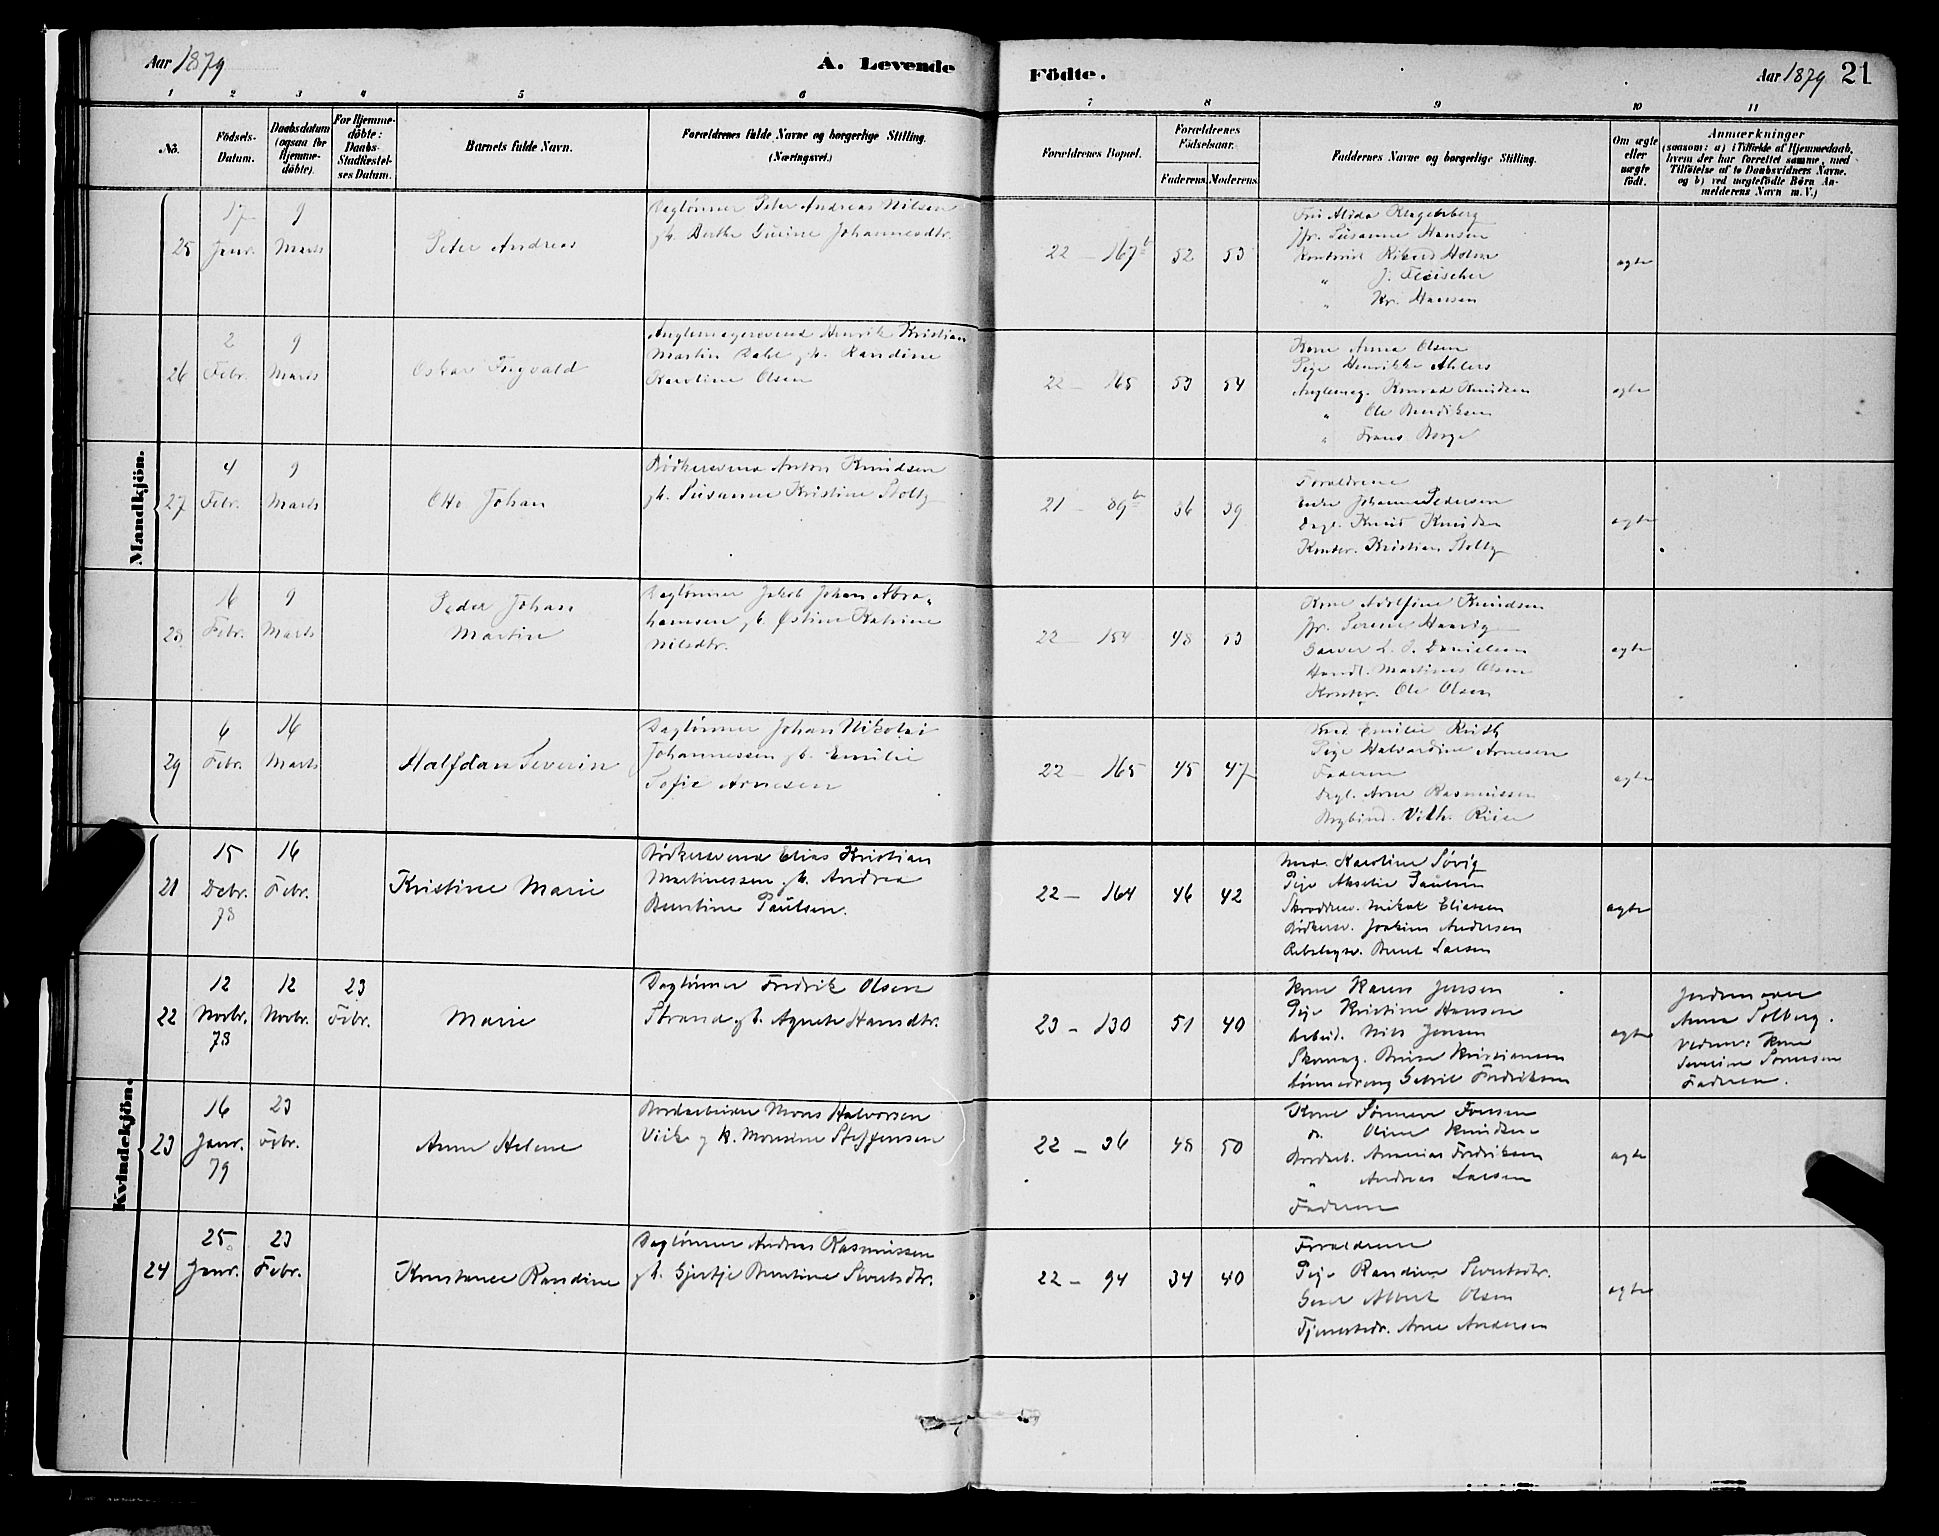 Aar 1879
A. Levende
Födte.
Aar 1879
21
1 2 3 4 5 6 7 8 9 10 11
No.
Födsels-Datum.
Daabsdatum (ogsaa for Hjemme-döbte).
For Hjemme-döbte: Daabs-Stadfæstel-ses Datum.
Barnets fulde Navn.
Forældrenes fulde Navne og borgerlige Stilling.
(Næringsvei.)
Forældrenes Bopæl.
Forældrenes Födselsaar.
Faderens. Moderens.
Faddernes Navne og borgerlige Stilling.
Om ægte eller uægte født.
Anmærkninger
(saasom: a) i Tilfælde af Hjemmedaab, hvem der har forrettet samme, med Tilföielse af to Daabsvidners Navne, og b) ved uægtefödte Börn Anmelderens Navn m.V.)
Mandkjön.
25
17 Janr.
9 Marts
Peter Andreas
Daglønner Peter Andreas Nilsen
gh. Berthe Gurine Johannesdtr.
22 - 167 b
52
53
Susanne Hansen
Rikard Holm
" J. Fleischer
" Kr. Hansen
ægte
26
2 Febr.
9 Marts
Oskar Ingvald
Henrik Kristian
Martin Dahl gh. Randine
Karoline Olsen
22 - 165
53
54
Kone Anna Olsen
Pige Henrikke Ahlers
Konrad Knudsen
" Ole Bendiksen
" Frans Borge
ægte
27
4 Febr.
9 Marts
Otto Johan
Bødkersvend Anton Knudsen
gh. Susanne Kristine Stoltz
21 - 89 b
36
39
Forældrene
Enke Johanne Pedersen
Dagl. Knud Knudsen
Kontor. Kristian Stoltz
ægte
28
16 Febr.
9 Marts
Peder Johan
Martin
Daglønner Jakob Johan Abra-
hamsen gh. Østine Katrine
Nilsdtr.
22 - 154
48
53
Kone Adolfine Knudsen
Garver L. S. Danielsen
Handl. Martinus Olsen
Kontor. Ole Olsen
ægte
29
6 Febr.
16 Marts
Halfdan Severin
Daglønner Johan Nikolai
Johannessen gh. Emilie
Sofie Arnesen
22 - 165
45
47
Pige Halvardine Arnesen
Faderen
Dagl. Arne Rasmussen
Bogbind. Vilh. Riise
ægte
Kvindekjön.
21
15 Debr. 78
16 Febr.
Kristine Marie
Bødkersvend Elias Kristian
Martinessen gh. Andrea
Bentine Paulsen.
22 - 164
46
42
Mad. Karoline Søvig
Pige Akselie Paulsen
Skræddersv. Mikal Eliasen
Bødkersv. Joakim Andersen
Rebslagsv. Bernt Larsen
ægte
22
12 Novbr. 78
12 Novbr.
23 Febr.
Marie
Daglønner Fredrik Olsen
Strand gh. Agnete Hansdtr.
23 - 130
51
40
Kone Karen Jensen
Pige Kristine Hansen
Arbeid. Nils Jensen
Skomag. Kristiansen
Gabriel Fredriksen
ægte
Jordemoder
Anna Solberg.
Vidner: Kone
Severine Sørensen
Faderen.
23
16 Janr. 79
23 Febr.
Anne Helene
Bordarbeider Mons Halvorsen
Viik gh. Monsine Steffensen
22 - 36
48
50
do. Oline Knudsen
Bordarb. Ananias Fredriksen
" Andreas Larsen
Faderen
ægte
24
25 Janr.
23 Febr.
Konstance Randine
Daglønner Andreas Rasmussen
gh. Gjertje Bentine Sivertsdtr.
22 - 94
34
40
Forældrene
Pige Randine Sivertsdtr.
Albert Olsen
Tjenestedr. Arne Andersen
ægte